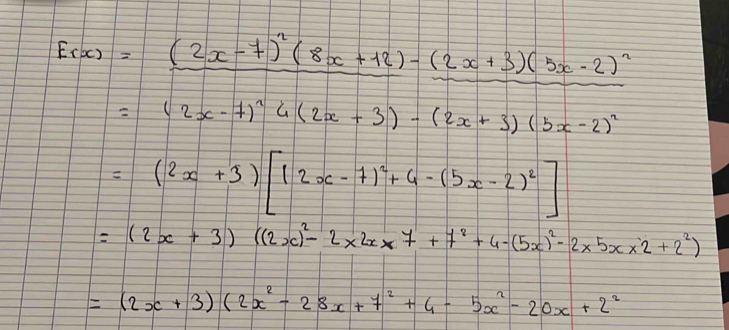 E(x) = (2x-7)² (8x+12) - (2x+3)(5x-2)²
= (2x-7)² 4(2x+3) - (2x+3)(5x-2)²
= (2x+3) [(2x-7)²+4-(5x-2)²]
= (2x+3) ((2x)²-2×2x×7+7²+4-(5x)²-2×5x×2+2²)
= (2x+3) (2x²-28x+7²+4-5x²-20x+2²